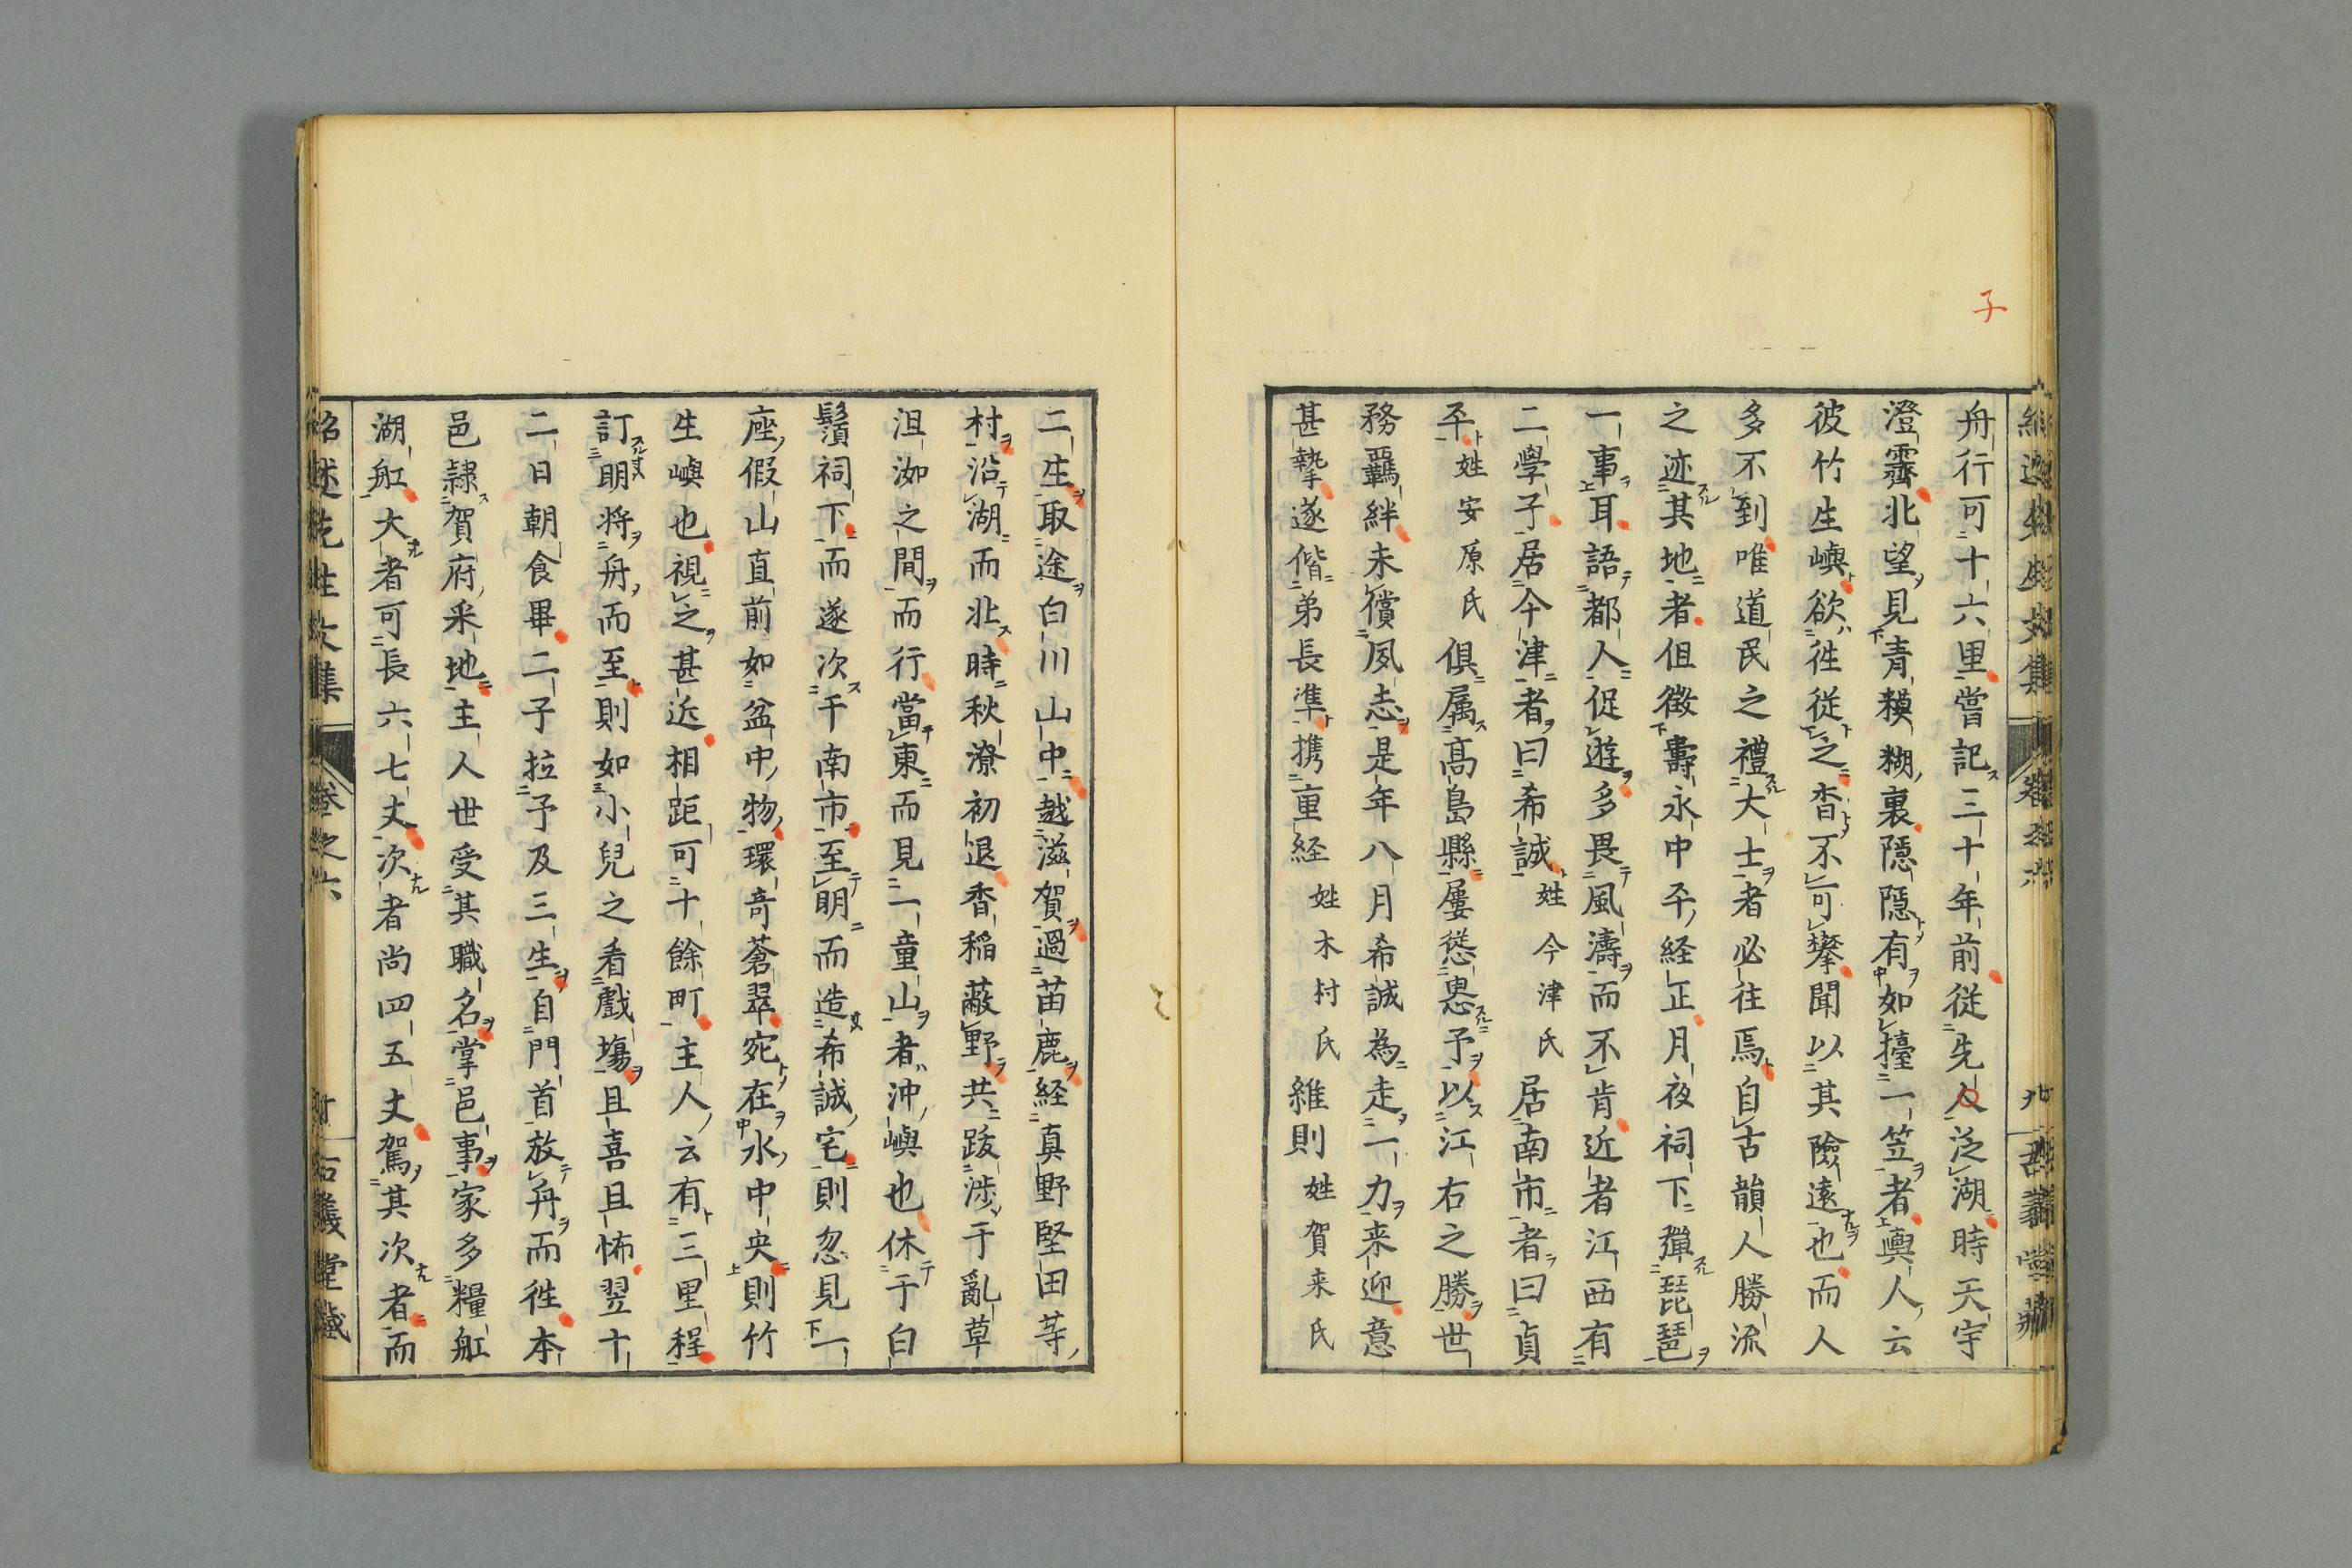 子
舟行可十六里嘗記三十年前從先人泛湖時天宇
澄霽北望見青糢糊裏隱隱有如擡一笠者輿人云
彼竹生嶼欲徃從之杳不可攀聞以其險遠也而人
多不到唯道民之禮大士者必往焉自古韻人勝流
之迹其地者但徵壽永中平經正月夜祠下彈琵琶
一事耳語都人促遊多畏風濤而不肯近者江西有
二學子居今津者曰希誠姓今津氏居南市者曰貞
平姓安原氏俱属高島縣屢慫慂予以江右之勝世
務羈絆未償夙志是年八月希誠為走一力来迎意
甚摯遂偕弟長準携重経姓木村氏維則姓賀来氏
二生取途白川山中越滋賀過苗鹿経真野堅田等
村沿湖而北時秋潦初退香稲蔽野共跋涉于亂草
沮洳之間而行當東而見一童山者沖嶼也休于白
鬚祠下而遂次于南市至明而造希誠宅則忽見一
座假山直前如盆中物環奇蒼翠宛在水中央則竹
生嶼也視之甚近相距可十餘町主人云有三里程
訂明将舟而至則如小兒之看戲場且喜且怖翌十
二日朝食畢二子拉予及三生自門首放舟而徃本
邑隷賀府采地主人世受其職名掌邑事家多糧舡
湖舡大者可長六七丈次者尚四五丈駕其次者而
紹述先生文集 卷之六 古義堂藏